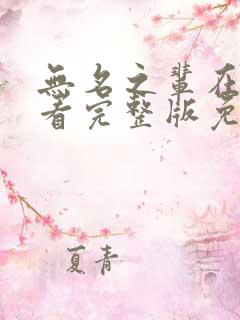 無名之輩在
看完整版免
夏青